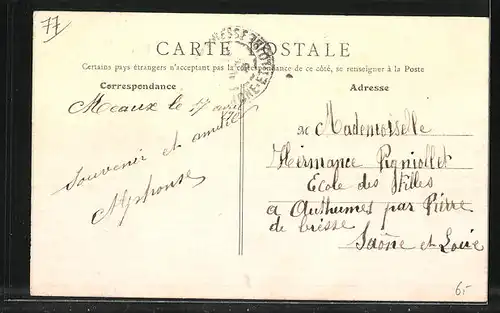 77
CARTE POSTALE
Certains pays étrangers n'acceptant pas la correspondance de ce côté, se renseigner à la Poste
Correspondance
Meaux le 17 avril
Souvenir et amitié
Alphonse
Adresse
Mademoiselle
Hermance Pigniollet
Ecole des filles
a Authumes par Pierre
de bresse
Saône et Loire
6,-